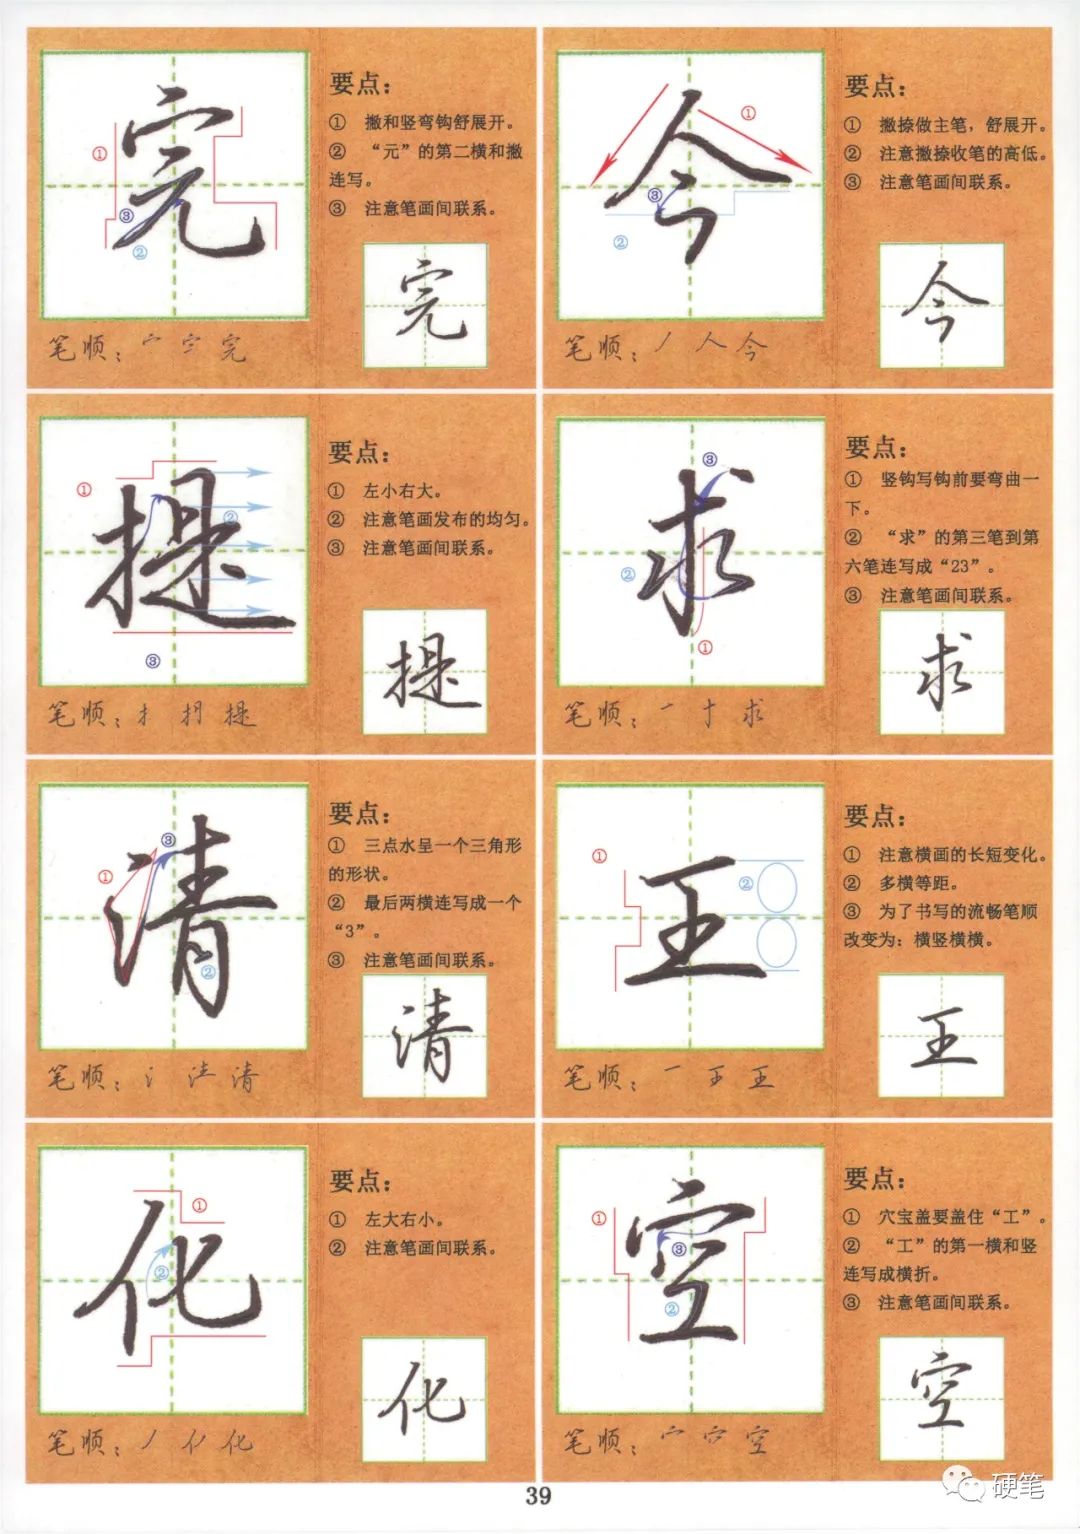 完
要点：
① 撇和竖弯钩舒展开。
② “元”的第二横和撇
连写。
③ 注意笔画间联系。
①
③
②
完
笔顺：宀 完
今
要点：
① 撇捺做主笔，舒展开。
② 注意撇捺收笔的高低。
③ 注意笔画间联系。
①
③
②
今
笔顺：丿 人 今
提
要点：
① 左小右大。
② 注意笔画发布的均匀。
③ 注意笔画间联系。
①
②
③
提
笔顺：扌 提
求
要点：
① 竖钩写钩前要弯曲一
下。
② “求”的第三笔到第
六笔连写成“23”。
③ 注意笔画间联系。
③
②
①
求
笔顺：一 十 求
清
要点：
① 三点水呈一个三角形
的形状。
② 最后两横连写成一个
“3”。
③ 注意笔画间联系。
③
①
②
清
笔顺：氵 清
王
要点：
① 注意横画的长短变化。
② 多横等距。
③ 为了书写的流畅笔顺
改变为：横竖横横。
①
②
王
笔顺：一 王 王
化
要点：
① 左大右小。
② 注意笔画间联系。
①
②
化
笔顺：丿 亻 化
空
要点：
① 穴宝盖要盖住“工”。
② “工”的第一横和竖
连写成横折。
③ 注意笔画间联系。
①
③
②
空
笔顺：宀 穴 空
39
硬笔